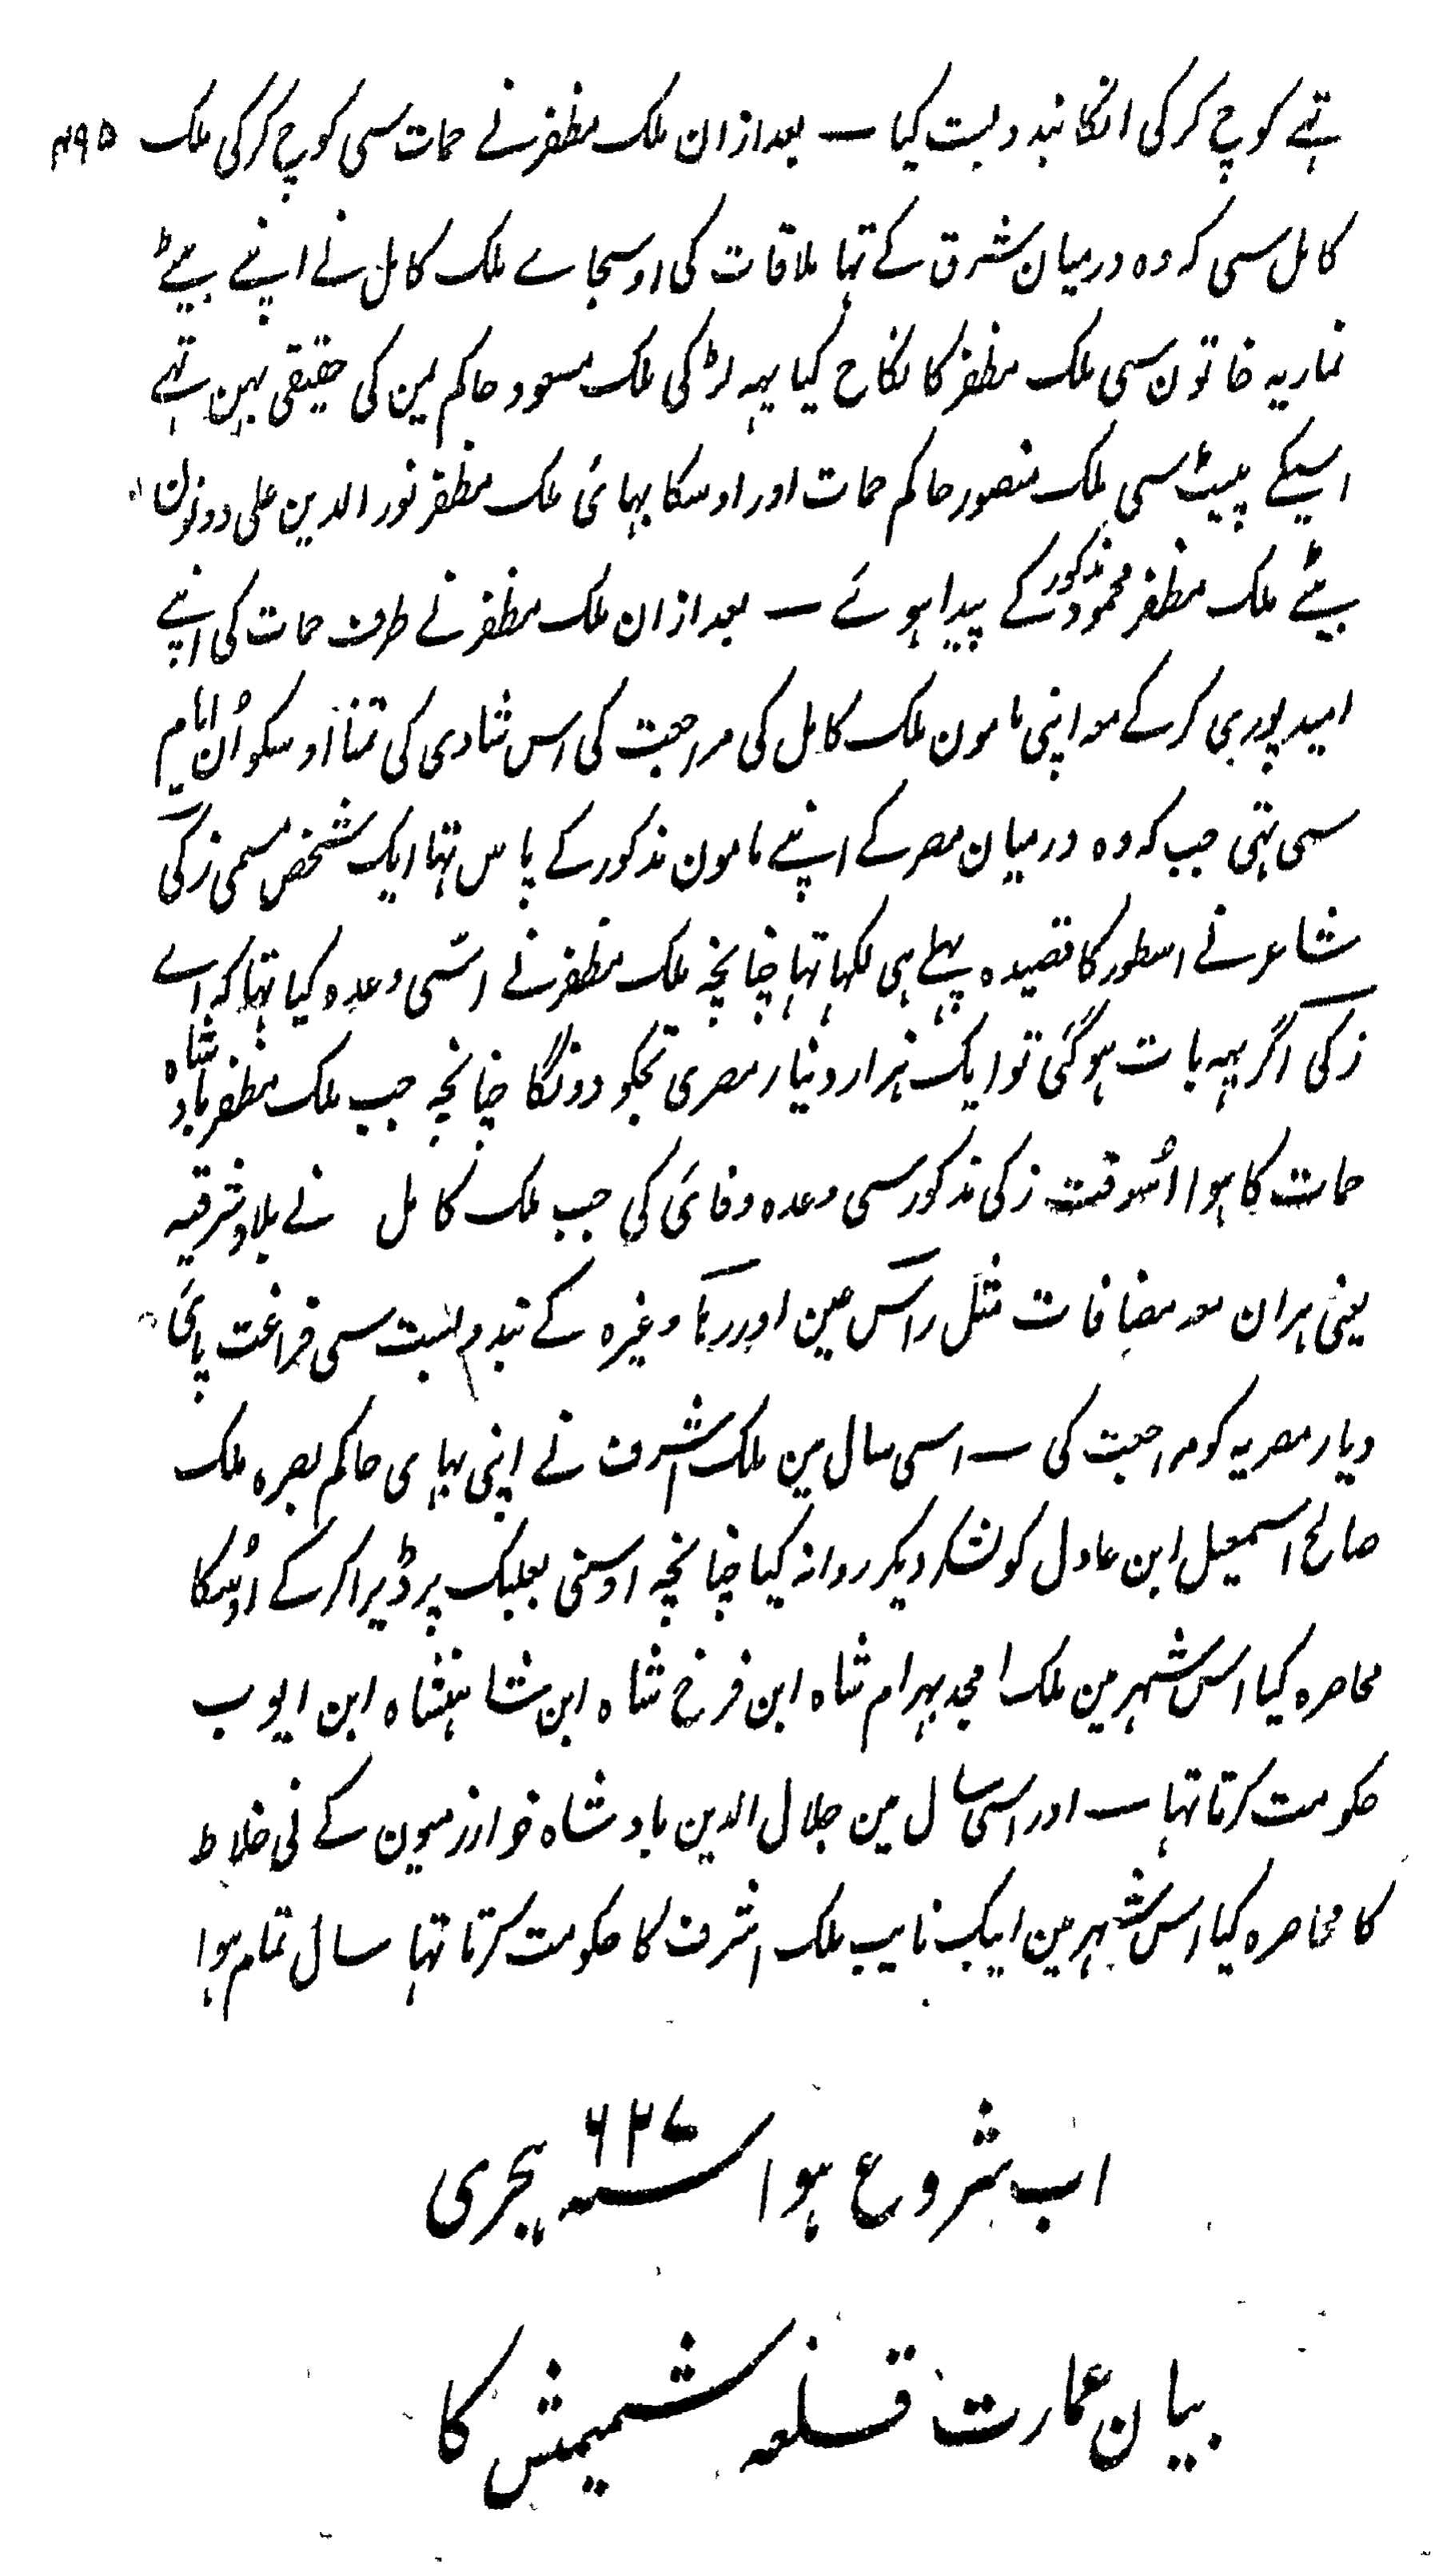 تہے کوچ کر کی انکا بند و بست کیا — بعد ازان ملک مظفر نے حمات سی کوچ کر کی ملک ۴۹۵
کامل سی کہ وہ درمیان شرق کے تہا ملاقات کی اوسجاے ملک کامل نے اپنے بیٹے
نماریہ خاتون سی ملک مظفر کا نکاح کیا یہہ لڑکی ملک مسعود حاکم یمن کی حقیقی بہن تہے
اسیکے پیٹ سی ملک منصور حاکم حمات اور اوسکا بہائ ملک مظفر نور الدین علی دونون
بیٹے ملک مظفر محمود مذکور کے پیدا ہوئے — بعد ازان ملک مظفر نے طرف حمات کی اپنے
امید پوری کر کے معہ اپنی مامون ملک کامل کی مراجعت کی اس شادی کی تمنا اوسکو اُن ایام
سی تہی جب کہ وہ درمیان مصر کے اپنے مامون مذکور کے پاس تہا ایک شخص مسمی زکی
شاعر نے اسطور کا قصیدہ پہلے ہی لکہا تہا چنانچہ ملک مظفر نے اسّی وعدہ کیا تہا کہ اے
زکی اگر یہہ بات ہوگئی تو ایک ہزار دنیار مصری تجکو دونگا چنانچہ جب ملک مظفر بادشاہ
حمات کا ہوا اُسوقت زکی مذکور سی وعدہ وفائی کی جب ملک کامل نے بلاد شرقیہ
یعنی ہران معہ مضافات مثل راس عین اور رہا وغیرہ کے بند و بست سی فراغت پائی
دیار مصریہ کو مراجعت کی — اسی سال مین ملک اشرف نے اپنی بہای حاکم بصرہ ملک
صالح اسمعیل ابن عادل کو لشکر دیکر روانہ کیا چنانچہ اوسنی بعلبک پر ڈیرا کر کے اوُسکا
محاصرہ کیا اس شہر مین ملک امجد بہرام شاہ ابن فرخ شاہ ابن شاہنشاہ ابن ایوب
حکومت کرتا تہا — اور اسی سال مین جلال الدین بادشاہ خوارزمیون کے نی خلاط
کا محاصرہ کیا اس شہر مین ایک نایب ملک اشرف کا حکومت کرتا تہا سال تمام ہوا
اب شروع ہوا سنہ ۶۲۷ ہجری
بیان عمارت قلعہ شمیمش کا